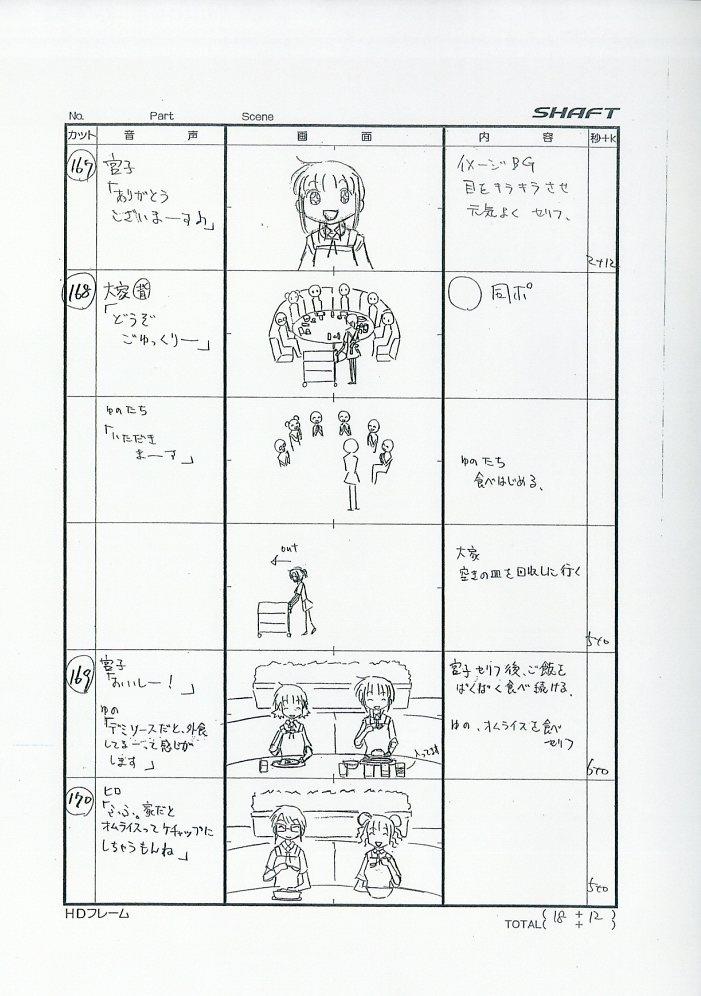 No. Part Scene SHAFT
カット 音声 画面 内容 秒+K
167
宮子
「ありがとう
ございまーす♪」
イメージBG
目をキラキラさせ
元気よく セリフ、
2+12
168
大家 背
「どうぞ
ごゆっくりー」
同ポ
ゆのたち
「いただき
まーす」
ゆのたち
食べはじめる、
out
大家
空きの皿を回収しに行く
5+0
169
宮子
「おいしー!」
ゆの
「デミソースだと、外食
してるーって感じが
します」
入ってます
宮子 セリフ後、ご飯を
ぱくぱく食べ続ける、
ゆの、オムライスを食べ
セリフ
6+0
170
ヒロ
「ふふ。家だと
オムライスってケチャップに
しちゃうもんね」
5+0
HDフレーム
TOTAL ( 18 + 12 )
( + )